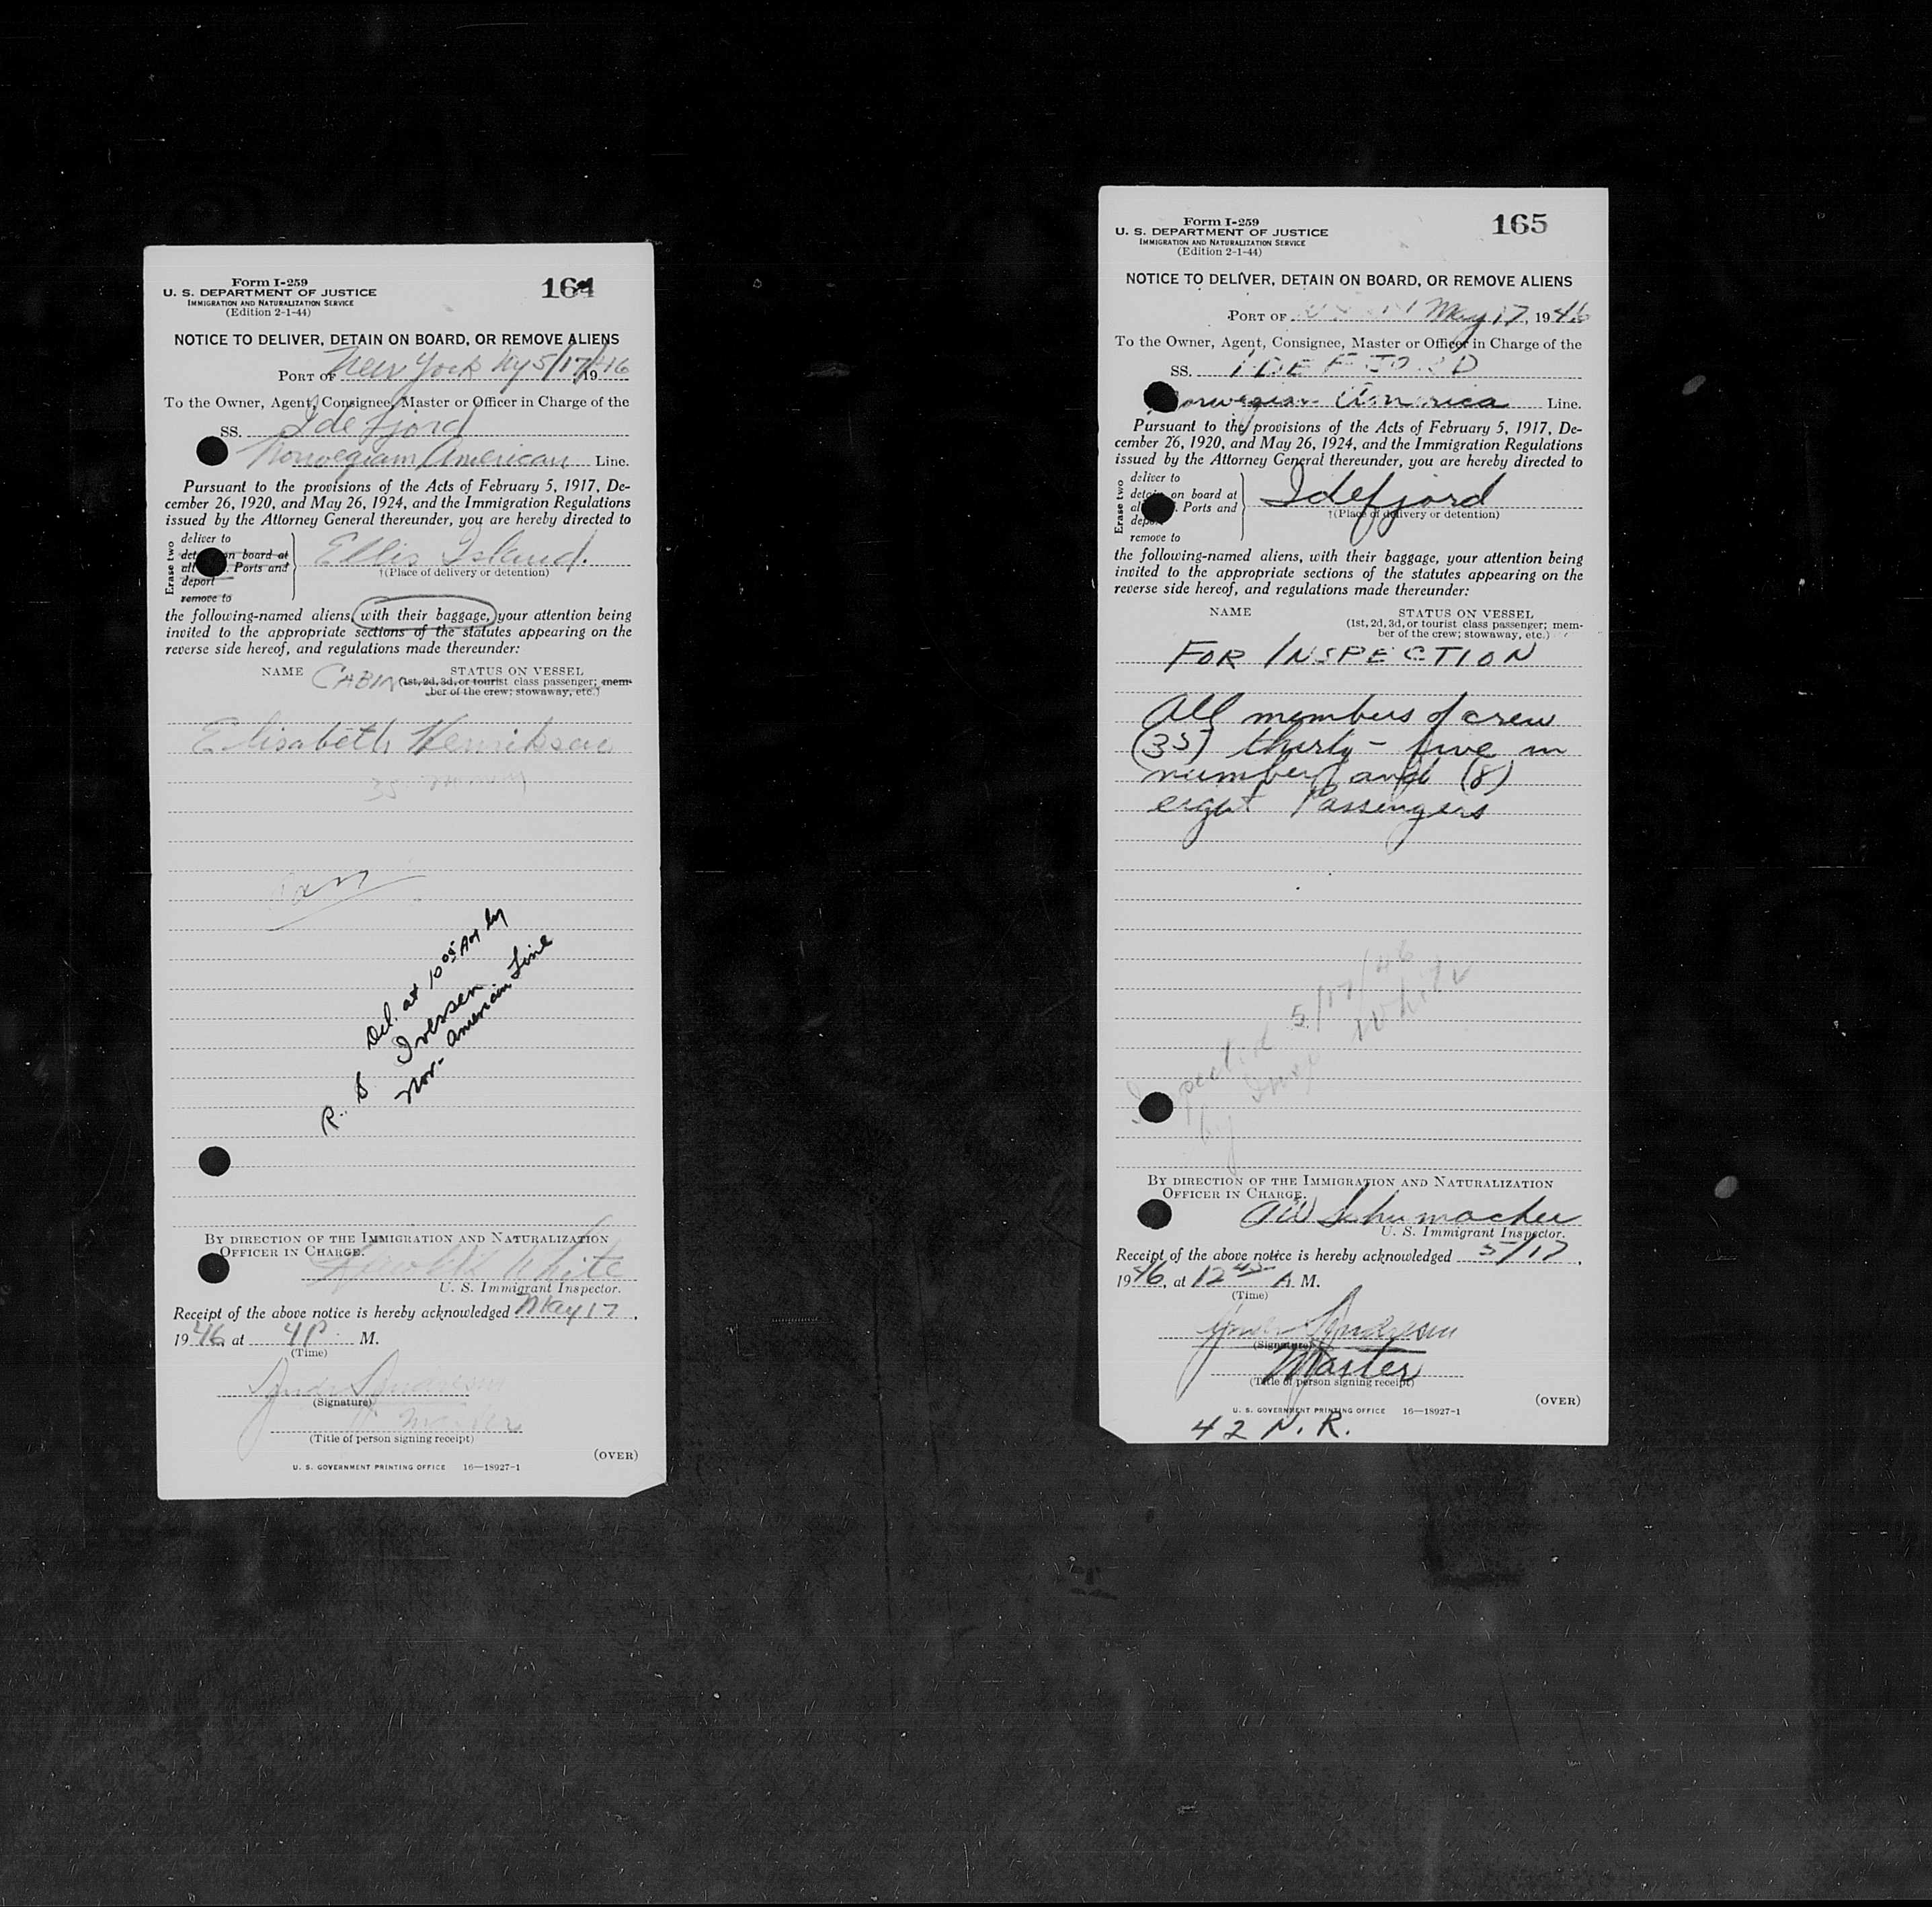 Form I-259
U. S. DEPARTMENT OF JUSTICE
IMMIGRATION AND NATURALIZATION SERVICE
(Edition 2-1-44)
164
NOTICE TO DELIVER, DETAIN ON BOARD, OR REMOVE ALIENS
PORT OF New York Ny 5/17/1946
To the Owner, Agent, Consignee, Master or Officer in Charge of the
SS. Idefjord
Norwegian American Line.
Pursuant to the provisions of the Acts of February 5, 1917, De-
cember 26, 1920, and May 26, 1924, and the Immigration Regulations
issued by the Attorney General thereunder, you are hereby directed to
Erase two
deliver to
on board at
all Ports and
deport
remove to
Ellis Island.
†(Place of delivery or detention)
the following-named aliens, with their baggage, your attention being
invited to the appropriate sections of the statutes appearing on the
reverse side hereof, and regulations made thereunder:
NAME CABIN STATUS ON VESSEL
(1st, 2d, 3d, or tourist class passenger; mem-
ber of the crew; stowaway, etc.)
Elisabeth Henriksen
Del. at 10 05 AM by
R. S Iversen
Nor- American Line
BY DIRECTION OF THE IMMIGRATION AND NATURALIZATION
OFFICER IN CHARGE.
White
U. S. Immigrant Inspector.
Receipt of the above notice is hereby acknowledged May 17,
1946 at 4 P. M.
(Time)
(Signature)
Master
(Title of person signing receipt)
(OVER)
U. S. GOVERNMENT PRINTING OFFICE 16—18927-1
Form I-259
U. S. DEPARTMENT OF JUSTICE
IMMIGRATION AND NATURALIZATION SERVICE
(Edition 2-1-44)
165
NOTICE TO DELIVER, DETAIN ON BOARD, OR REMOVE ALIENS
PORT OF May 17, 1946
To the Owner, Agent, Consignee, Master or Officer in Charge of the
SS. IDEFJORD
Norwegian America Line.
Pursuant to the provisions of the Acts of February 5, 1917, De-
cember 26, 1920, and May 26, 1924, and the Immigration Regulations
issued by the Attorney General thereunder, you are hereby directed to
Erase two
deliver to
detain on board at
all Ports and
deport
remove to
Idefjord
†(Place of delivery or detention)
the following-named aliens, with their baggage, your attention being
invited to the appropriate sections of the statutes appearing on the
reverse side hereof, and regulations made thereunder:
NAME STATUS ON VESSEL
(1st, 2d, 3d, or tourist class passenger; mem-
ber of the crew; stowaway, etc.)
FOR INSPECTION
All members of crew
(35) thirty - five in
number and (8)
eight Passengers
Inspected 5/17/46
by Insp White
BY DIRECTION OF THE IMMIGRATION AND NATURALIZATION
OFFICER IN CHARGE.
Schumacher
U. S. Immigrant Inspector.
Receipt of the above notice is hereby acknowledged 5/17,
1946, at 12 45 A M.
(Time)
(Signature)
Master
(Title of person signing receipt)
(OVER)
U. S. GOVERNMENT PRINTING OFFICE 16—18927-1
42 N. R.